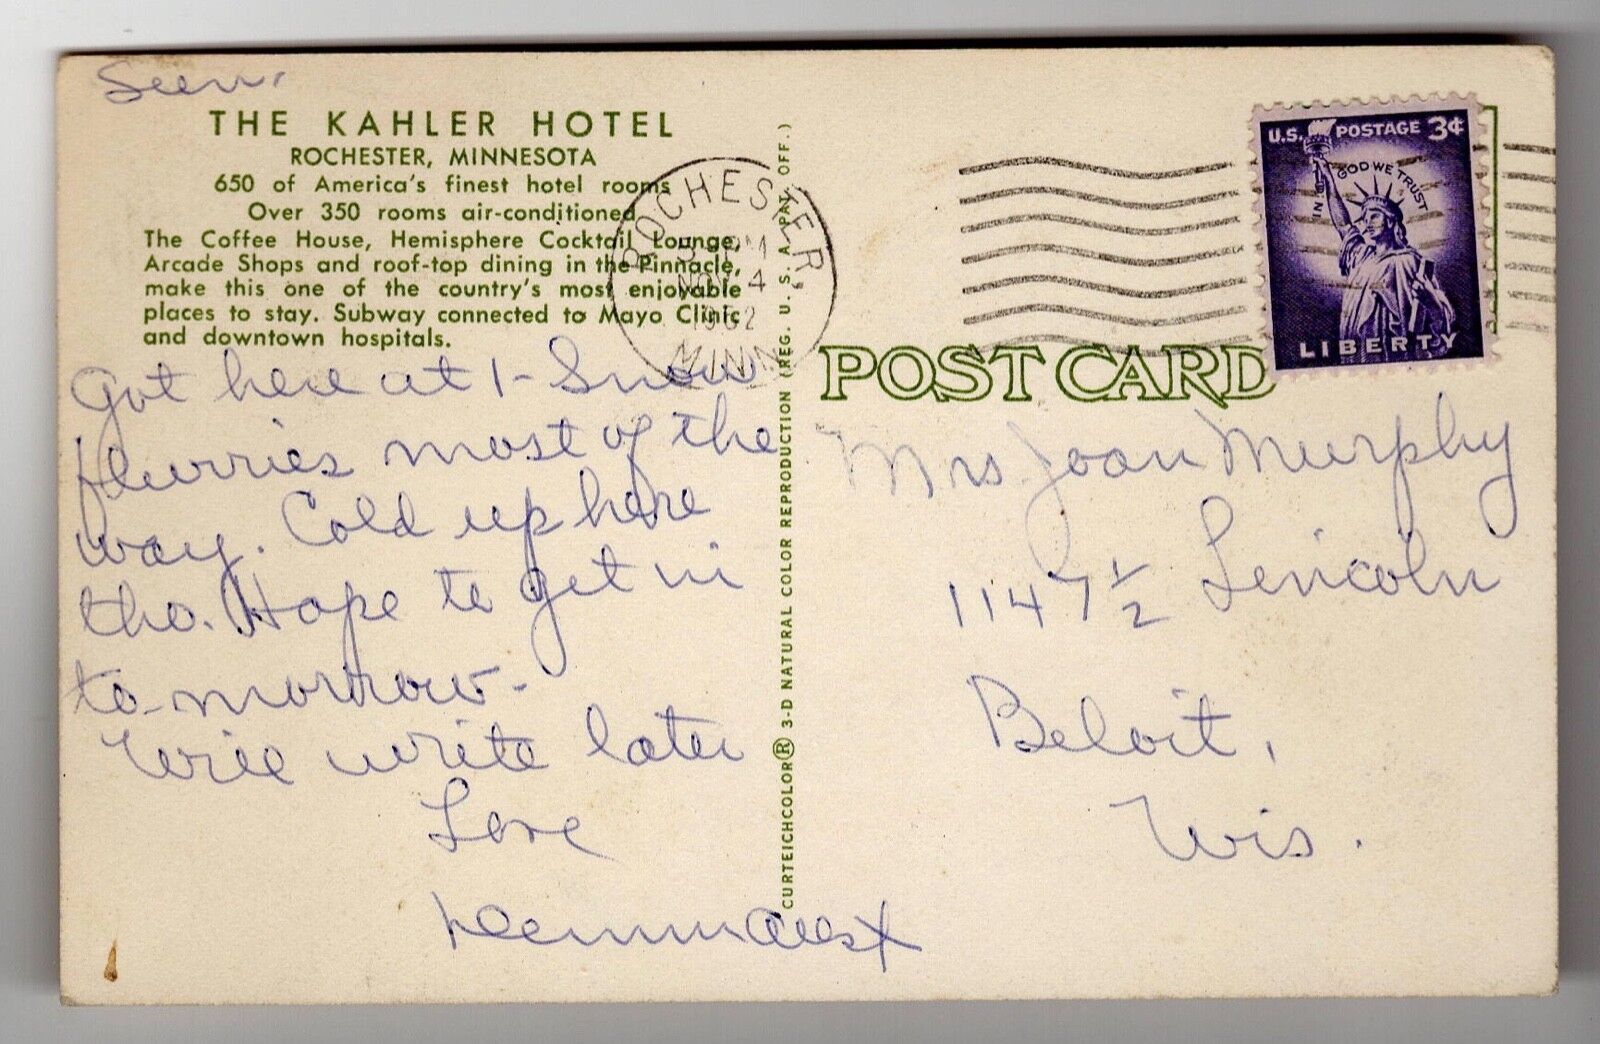 THE KAHLER HOTEL
ROCHESTER, MINNESOTA
650 of America's finest hotel rooms
Over 350 rooms air-conditioned
The Coffee House, Hemisphere Cocktail Lounge,
Arcade Shops and roof-top dining in the Pinnacle,
make this one of the country's most enjoyable
places to stay. Subway connected to Mayo Clinic
and downtown hospitals.
Got here at 1- Snow
flurries most of the
way. Cold up here
tho. Hope to get in
to-morrow-
Will write later
Love
CURTEICHCOLOR® 3-D NATURAL COLOR REPRODUCTION (REG. U. S. A. PAT. OFF.)
ROCHESTER,
PM
4
1962
MINN.
U.S. POSTAGE 3¢
IN GOD WE TRUST
LIBERTY
POST CARD
Mrs. Joan Murphy
1147 1/2 Lincoln
Beloit,
Wis.